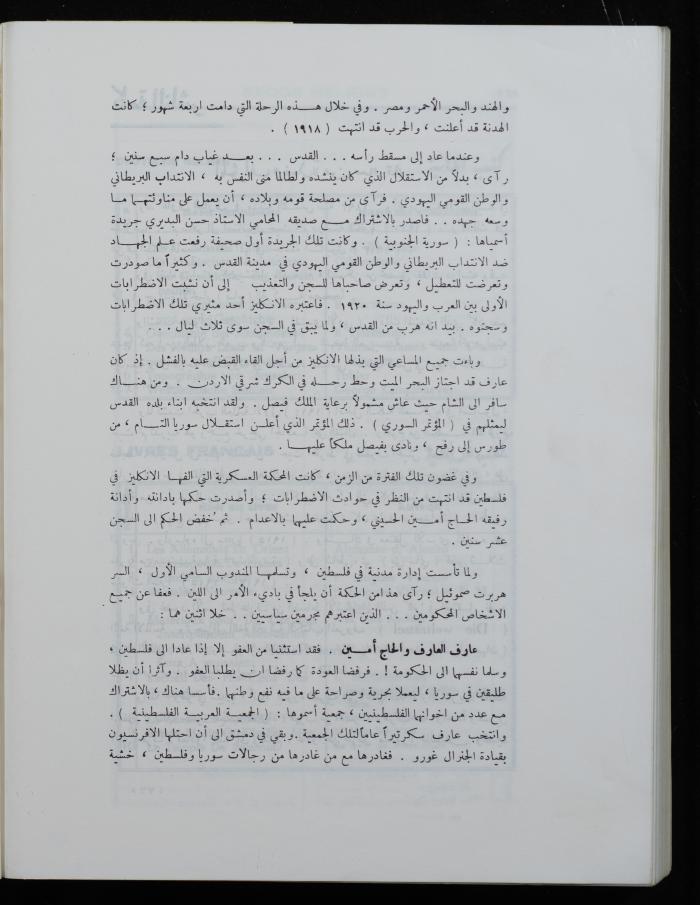 والهند والبحر الأحمر ومصر . وفي خلال هـــذه الرحلة التي دامت اربعة شهور ؛ كانت
الهدنة قد أعلنت ، والحرب قد انتهت ( ١٩١٨ ) .
وعندما عاد إلى مسقط رأسه . . . القدس . . . بعــد غياب دام سبع سنين ؛
رآى ، بدلاً من الاستقلال الذي كان ينشده ولطالما منى النفس به ، الانتداب البريطاني
والوطن القومي اليهودي . فرآى من مصلحة قومه وبلاده ، أن يعمل على مناوئتهمـا مــا
وسعه جهده . . فاصدر بالاشتراك مــع صديقه المحامي الاستاذ حسن البديري جريدة
أسمياها : ( سورية الجنوبية ) . وكانت تلك الجريدة أول صحيفة رفعت علـم الجهــاد
ضد الانتداب البريطاني والوطن القومي اليهودي في مدينة القدس . وكثيراً ما صودرت
وتعرضت للتعطيل ، وتعرض صاحباها للسجن والتعذيب إلى أن نشبت الاضطرابات
الأولى بين العرب واليهود سنة ١٩٢٠ . فاعتبره الانكليز أحد مثيري تلك الاضطرابات
وسجنوه . بيد انه هرب من القدس ، ولما يبق في السجن سوى ثلاث ليال . . .
وباءت جميع المساعي التي بذلها الانكليز من أجل القاء القبض عليه بالفشل . إذ كان
عارف قد اجتاز البحر الميت وحط رحـــله في الكرك شرقي الاردن . ومن هنــاك
سافر الى الشام حيث عاش مشمولاً برعاية الملك فيصل . ولقد انتخبه ابناء بلده القدس
ليمثلهم في ( المؤتمر السوري ) . ذلك المؤتمر الذي أعلــن استقــلال سوريا التــام ، من
طورس إلى رفح ، ونادى بفيصل ملكاً عليهــا .
وفي غضون تلك الفترة من الزمن ، كانت المحكمة العسكرية التي الفهـا الانكليز في
فلسطين قد انتهت من النظر في حوادث الاضطرابات ؛ وأصدرت حكمها بادانته وأدانة
رفيقه الحــاج أمــين الحسيني ، وحكمت عليهما بالاعدام . ثم خُفض الحكم الى السجن
عشر سنين .
ولما تأسست إدارة مدنية في فلسطين ، وتسلمهـا المندوب السامي الأول ، السر
هربرت صموئيل ؛ رآى هذا من الحكمة أن يلجأ في بادىء الأمر الى اللين . فعفا عن جميع
الاشخاص المحكومين . . . الذين اعتبرهم مجرمين سياسيين . . خلا اثنين هما :
عارف العارف والحاج أمــين . فقد استثنيا من العفو إلا إذا عادا الى فلسطين ،
وسلما نفسهما الى الحكومة ! . فرفضا العودة كما رفضا ان يطلبا العفو . وآثرا أن يظلا
طليقين في سوريا ، ليعملا بحرية وصراحة على ما فيه نفع وطنهما . فأسسا هناك ، بالاشتراك
مـع عدد من اخوانهما الفلسطينيين ، جمعية أسموها : ( الجمعيـة العربيـة الفلسطينية ) .
وانتخب عارف سكرتيراً عاماً لتلك الجمعية . وبقي في دمشق الى أن احتلها الافرنسيون
بقيادة الجنرال غورو . فغادرها مع من غادرها من رجالات سوريا وفلسطين ، خشية